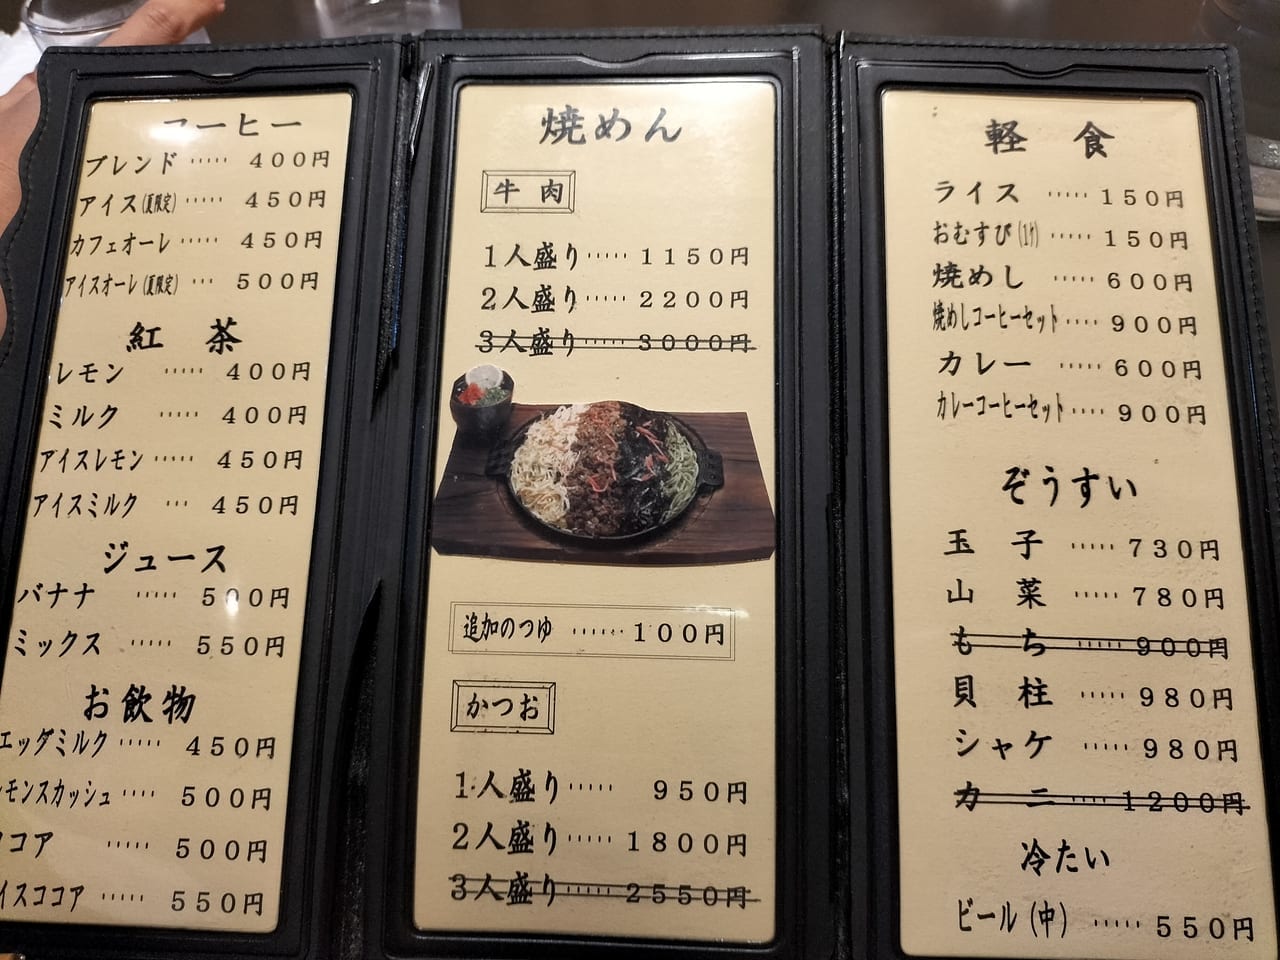 コーヒー
ブレンド ····· 400円
アイス(夏限定) ····· 450円
カフェオーレ ····· 450円
アイスオーレ(夏限定) ··· 500円
紅 茶
レモン ····· 400円
ミルク ····· 400円
アイスレモン ····· 450円
アイスミルク ··· 450円
ジュース
バナナ ····· 500円
ミックス ····· 550円
お飲物
エッグミルク ····· 450円
モンスカッシュ ···· 500円
ココア ····· 500円
イスココア ····· 550円
焼めん
牛 肉
1人盛り ····· 1150円
2人盛り ····· 2200円
3人盛り ····· 3000円
追加のつゆ ······ 100円
かつお
1人盛り ····· 950円
2人盛り ····· 1800円
3人盛り ····· 2550円
軽 食
ライス ····· 150円
おむすび(1ケ) ····· 150円
焼めし ····· 600円
焼めしコーヒーセット ···· 900円
カレー ····· 600円
カレーコーヒーセット ···· 900円
ぞうすい
玉 子 ····· 730円
山 菜 ····· 780円
も ち ····· 900円
貝 柱 ····· 980円
シャケ ····· 980円
カ ニ ···· 1200円
冷たい
ビール(中) ····· 550円